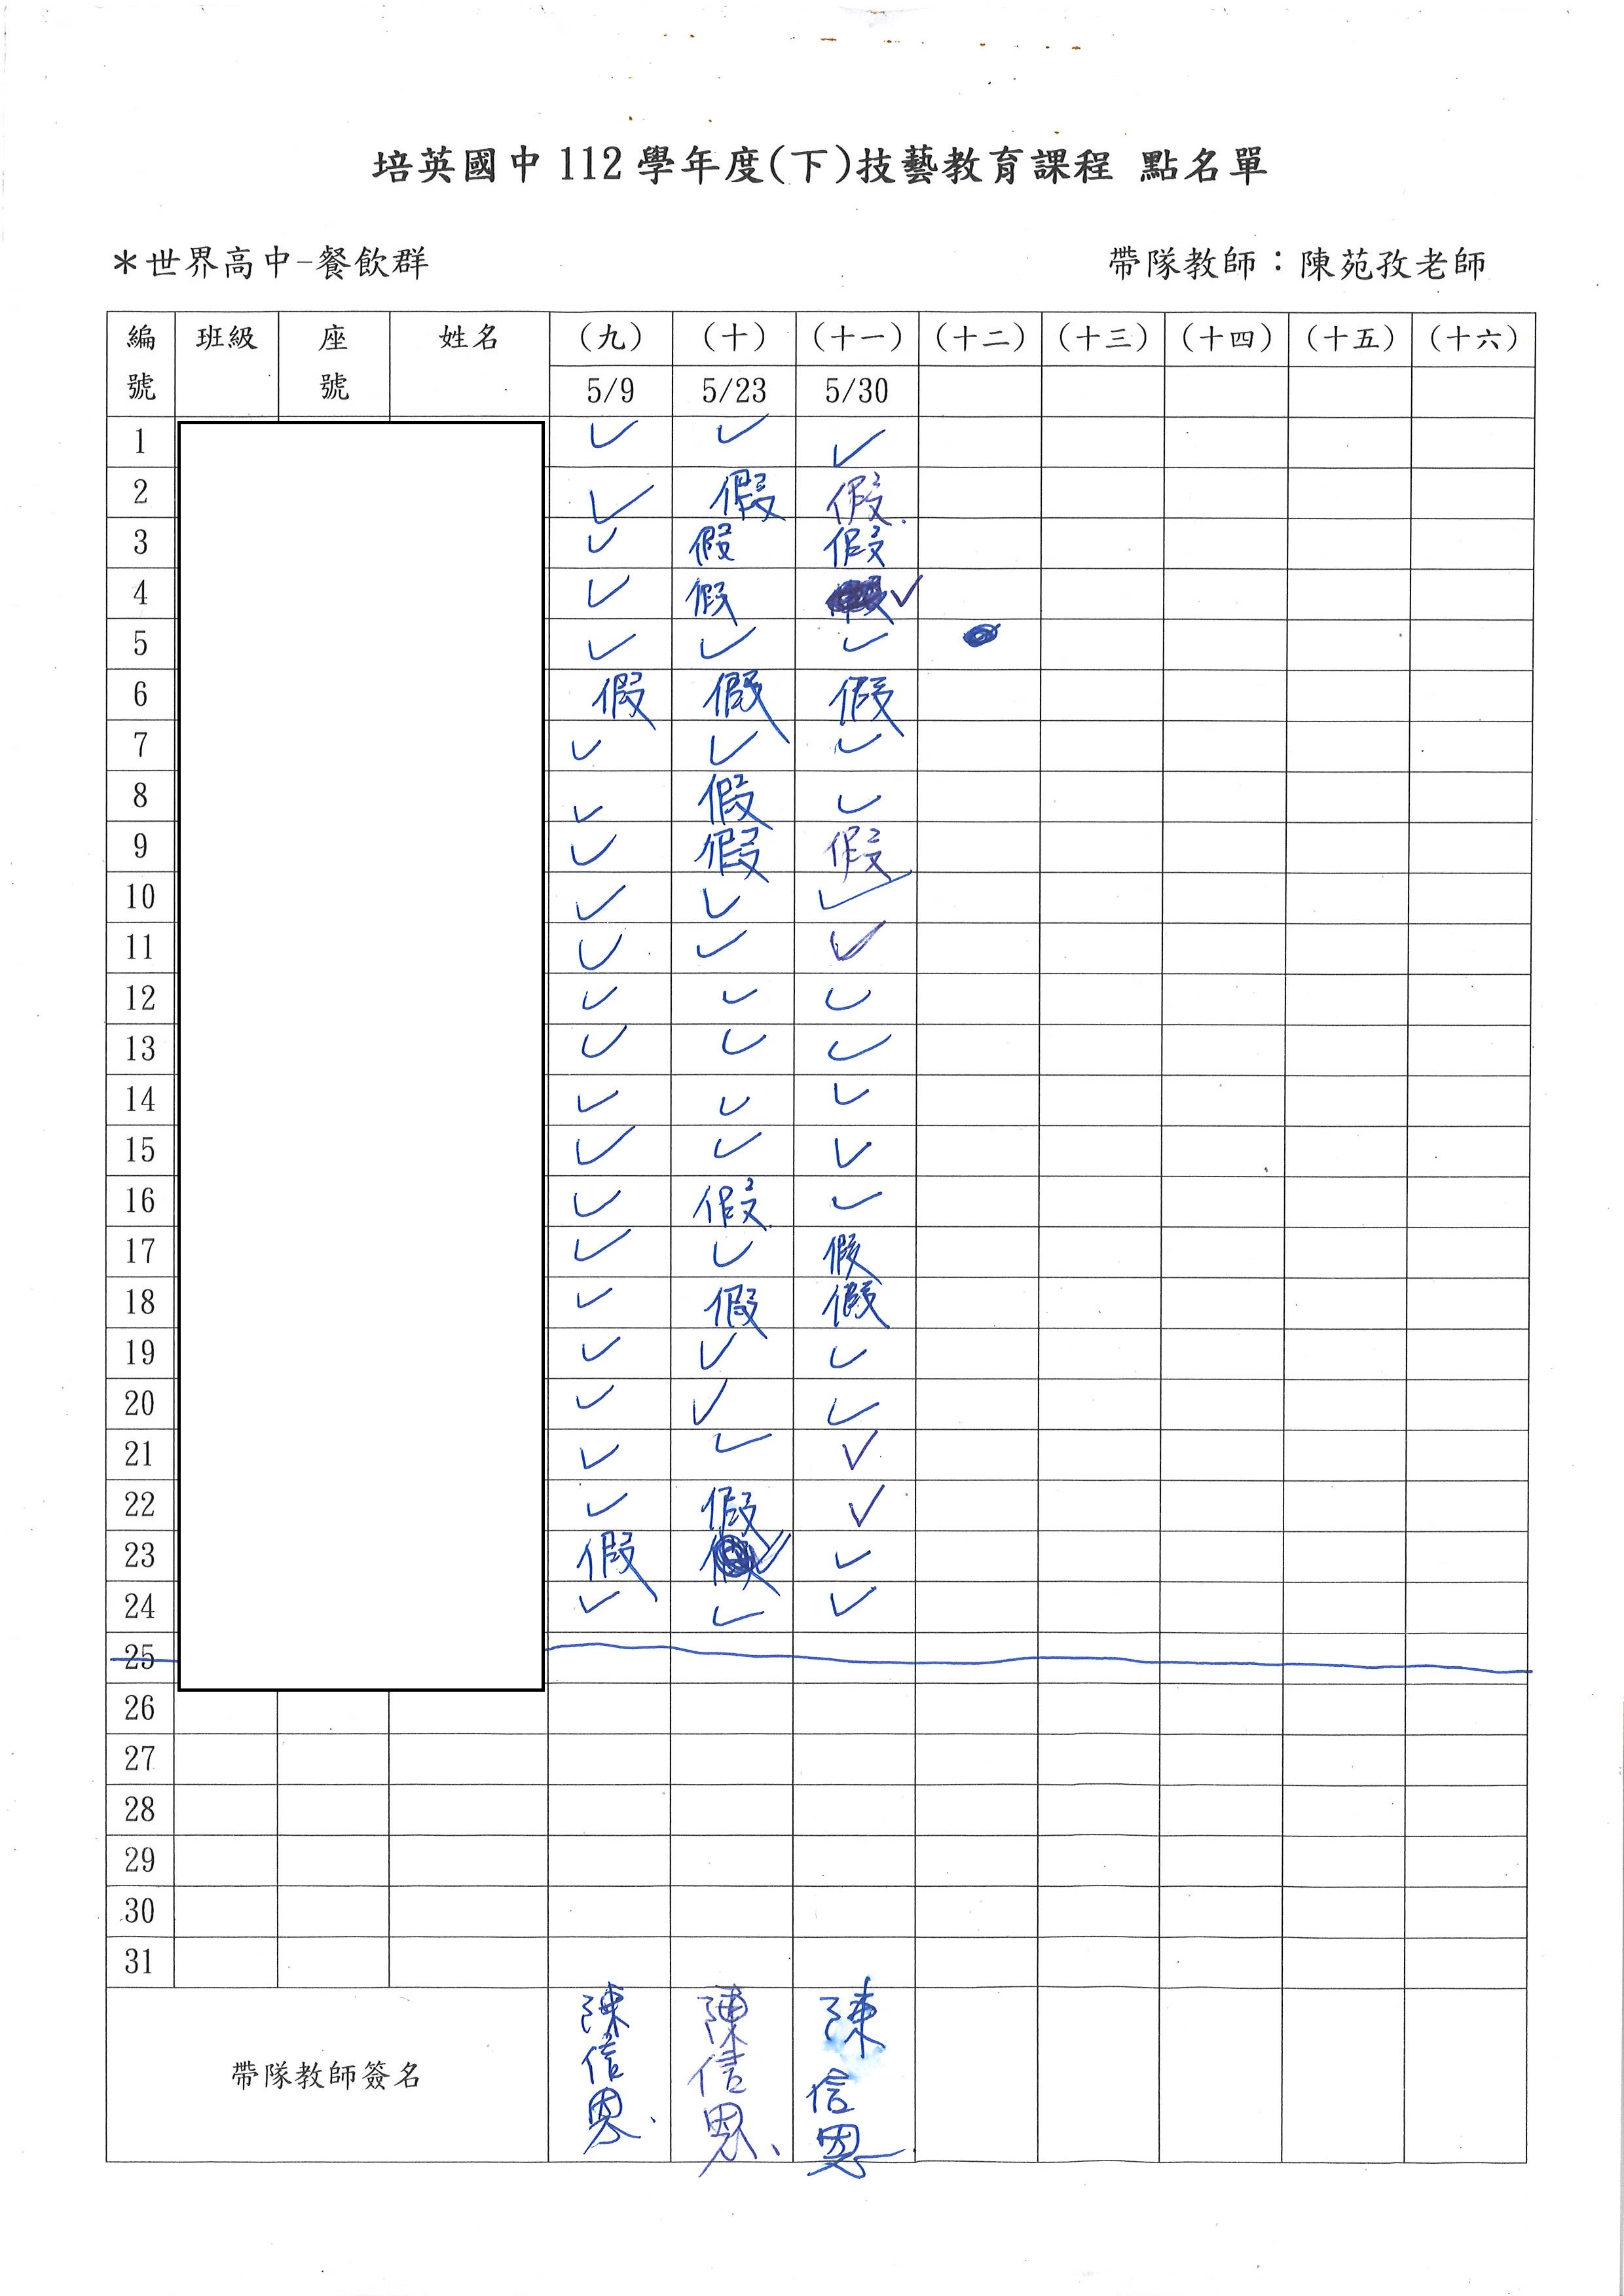 培英國中112學年度(下)技藝教育課程 點名單
＊世界高中-餐飲群 帶隊教師：陳苑孜老師
編號 班級 座號 姓名 (九) (十) (十一) (十二) (十三) (十四) (十五) (十六)
5/9 5/23 5/30
1 ✓ ✓ ✓
2 ✓ 假 假
3 ✓ 假 假
4 ✓ 假 ✓
5 ✓ ✓ ✓
6 假 假 假
7 ✓ ✓ ✓
8 ✓ 假 ✓
9 ✓ 假 假
10 ✓ ✓ ✓
11 ✓ ✓ ✓
12 ✓ ✓ ✓
13 ✓ ✓ ✓
14 ✓ ✓ ✓
15 ✓ ✓ ✓
16 ✓ 假 ✓
17 ✓ ✓ 假
18 ✓ 假 假
19 ✓ ✓ ✓
20 ✓ ✓ ✓
21 ✓ ✓ ✓
22 ✓ 假 ✓
23 假 ✓ ✓
24 ✓ ✓ ✓
25
26
27
28
29
30
31
帶隊教師簽名 陳信恩 陳信恩 陳信恩